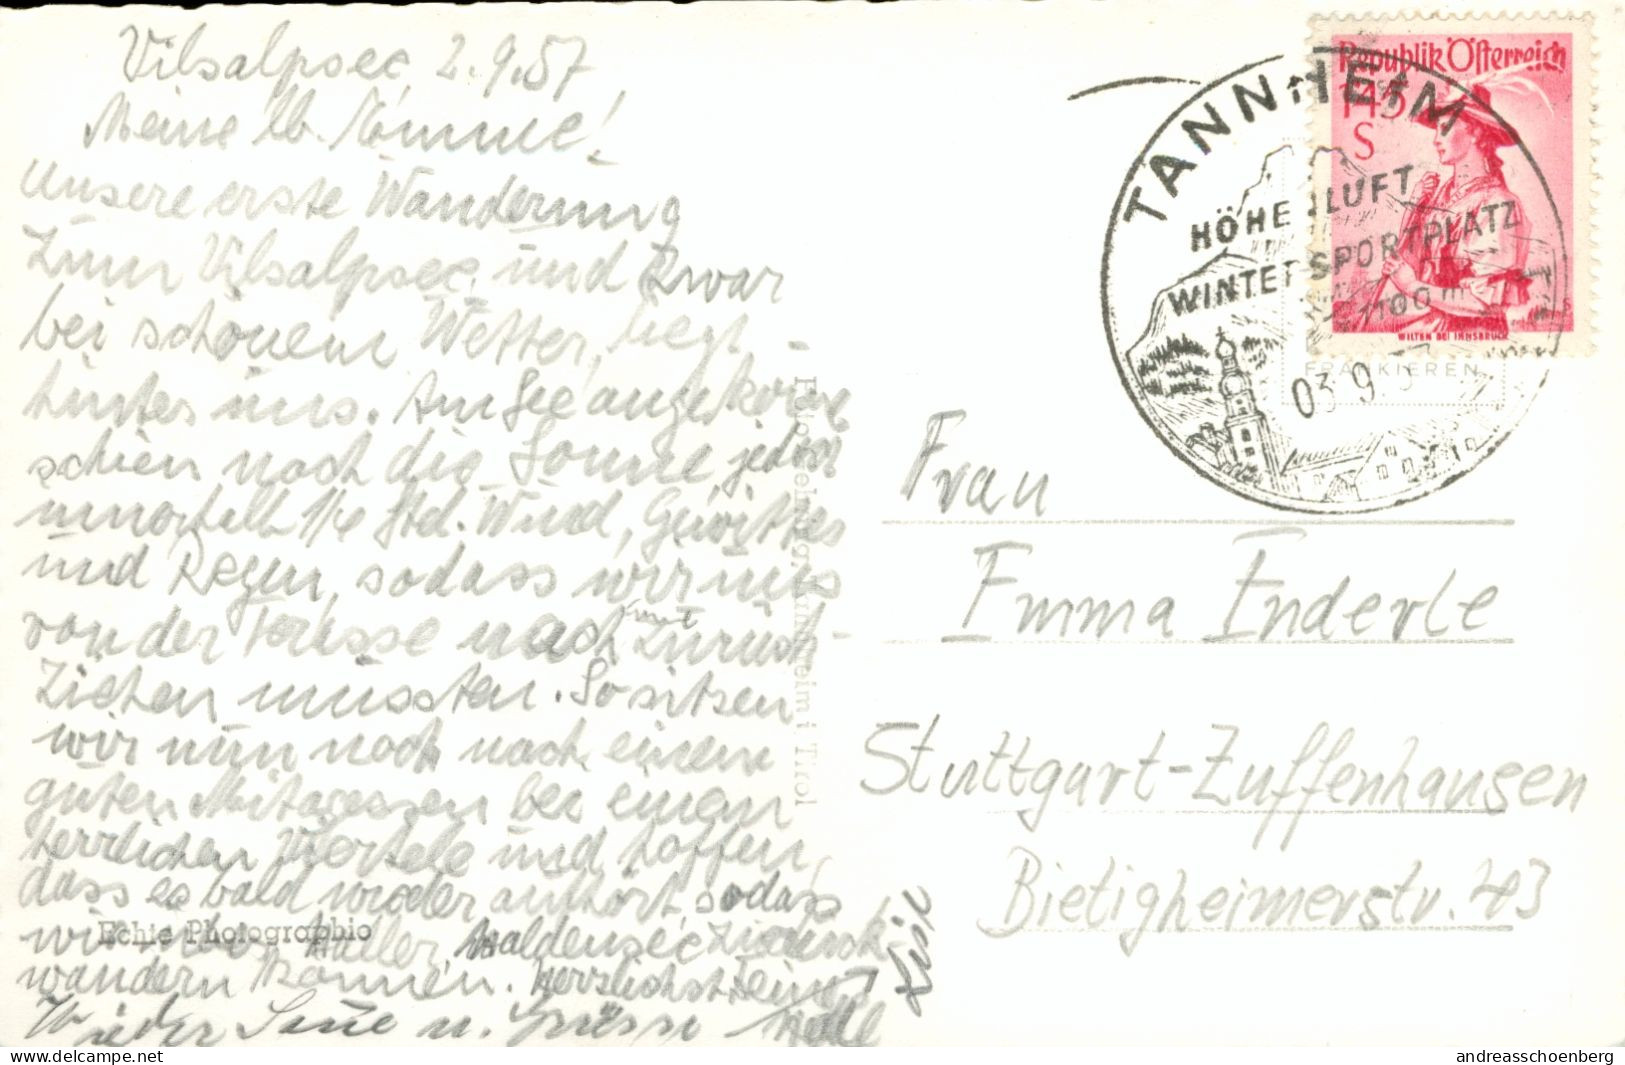 Vilsalpsee, 2.9.57
Meine lb. Mamme!
Unsere erste Wanderung
zum Vilsalpsee, und zwar
bei schönem Wetter, liegt
hinter uns. Am See angekommen
schien noch die Sonne, jedoch
innerhalb 1/4 Std. Wind, Gewitter
und Regen, sodass wir uns
von der Terasse nach innen zurück-
ziehen müssten. So sitzen
wir nun noch nach einem
guten Mittagessen bei einem
herrlichen Viertele und hoffen,
dass es bald wieder aufhört, sodass
wir Haller, Haldensee zurück-
wandern können. Herzlichst
Wieder Sonne u. Grüsse
Echte Photographie
Tannheim i Tirol
TANNHEIM
HÖHENLUFT
WINTERSPORTPLATZ
1100 m
03 9 57
Republik Österreich
1'45
S
WILTEN BEI INNSBRUCK
FRANKIEREN
Frau
Emma Enderle
Stuttgart-Zuffenhausen
Bietigheimerstr. 43
www.delcampe.net
andreasschoenberg